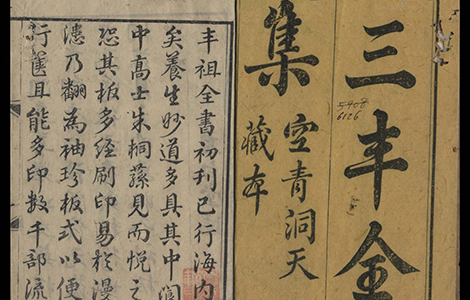 三丰全
集
空青洞天
藏本
6126
丰祖全書初刊已行海内
矣養生妙道多具其中洞
中髙士朱桐蓀見而悦之
恐其板多經刷印易於漫
漶乃翻為袖珍板式以便
行篋且能多印數千部流